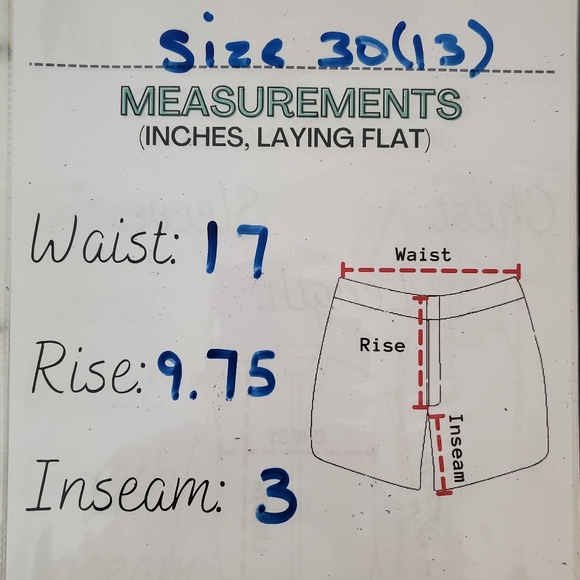 Size 30(13)
MEASUREMENTS
(INCHES, LAYING FLAT)
Waist: 17
Waist
Rise: 9.75
Rise
Inseam: 3
Inseam